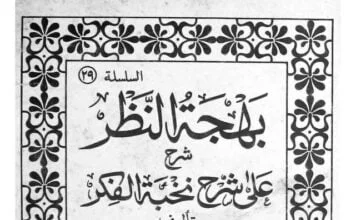 السلسلة ٢٩
بَهجَةُ النَّظَر
شرح
على شرح نخبة الفكر